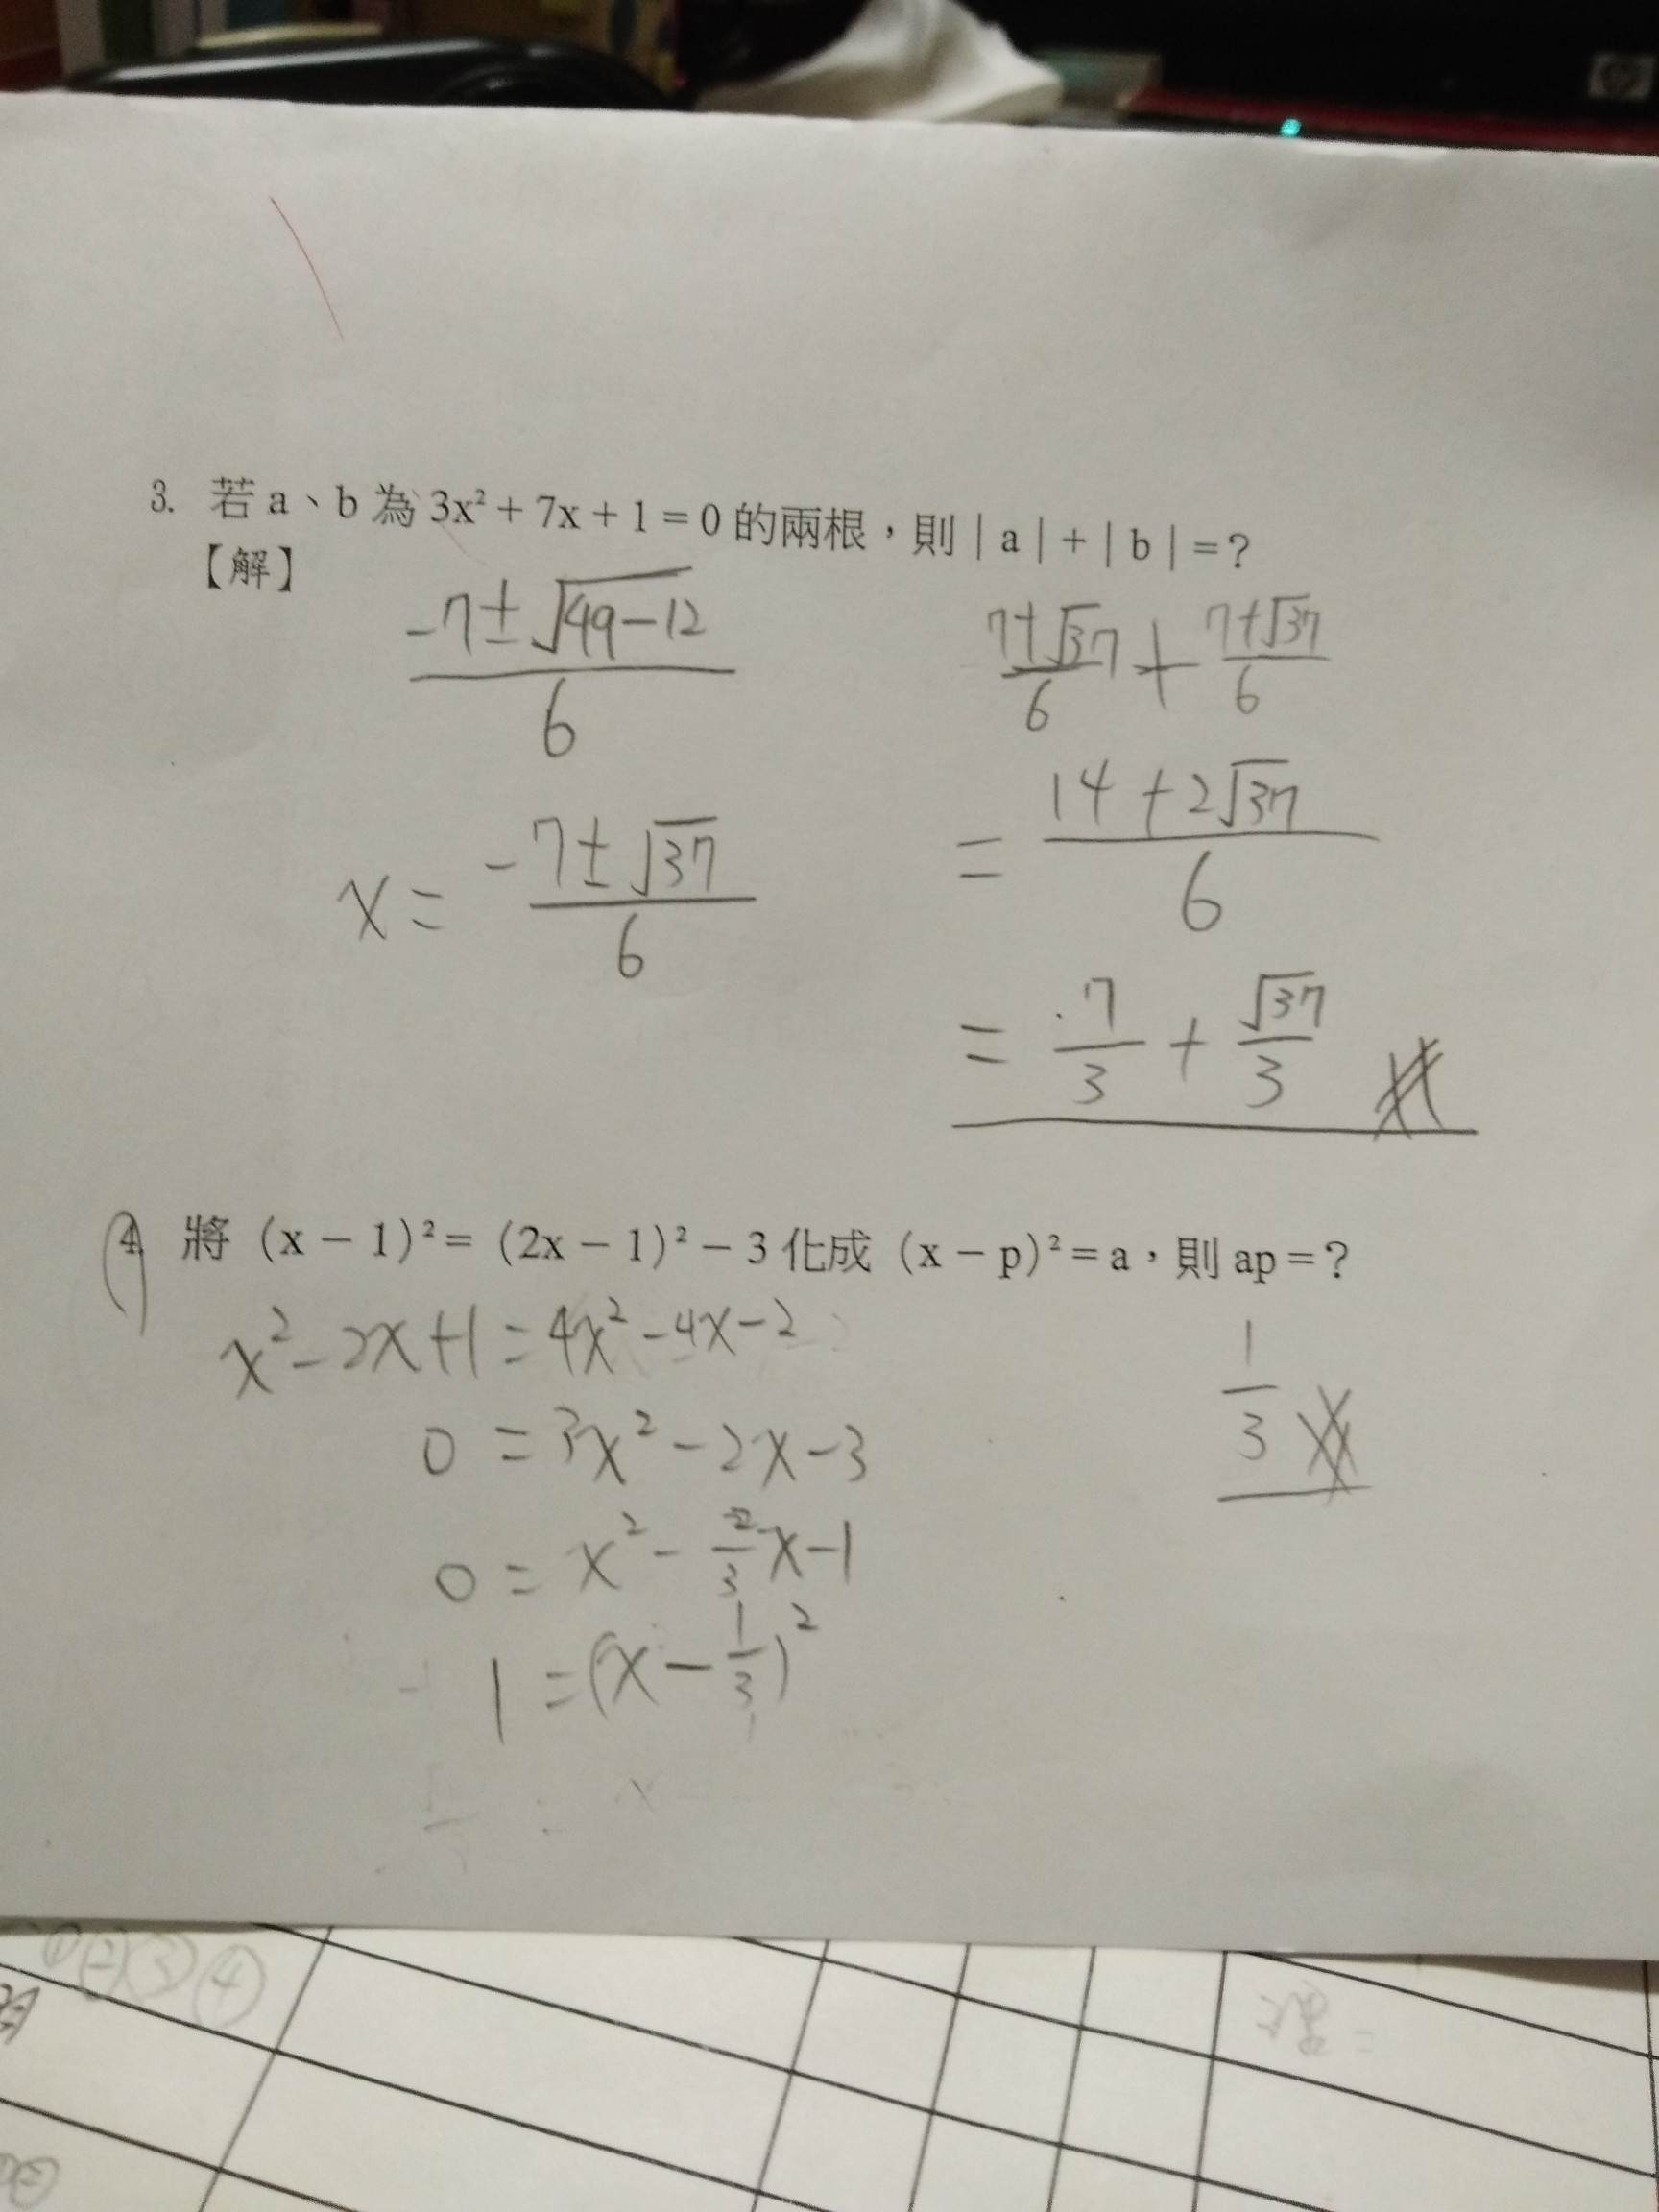 3. 若 a、b 為 3x² + 7x + 1 = 0 的兩根，則 | a | + | b | = ?
【解】
-7±√(49-12) / 6
7+√37 / 6 + 7+√37 / 6
= 14 + 2√37 / 6
x = -7±√37 / 6
= 7/3 + √37/3
4. 將 (x − 1)² = (2x − 1)² − 3 化成 (x − p)² = a，則 ap = ?
x² - 2x + 1 = 4x² - 4x - 2
1/3
0 = 3x² - 2x - 3
0 = x² - 2/3 x - 1
1 = (x - 1/3)²
① ② ③ ④